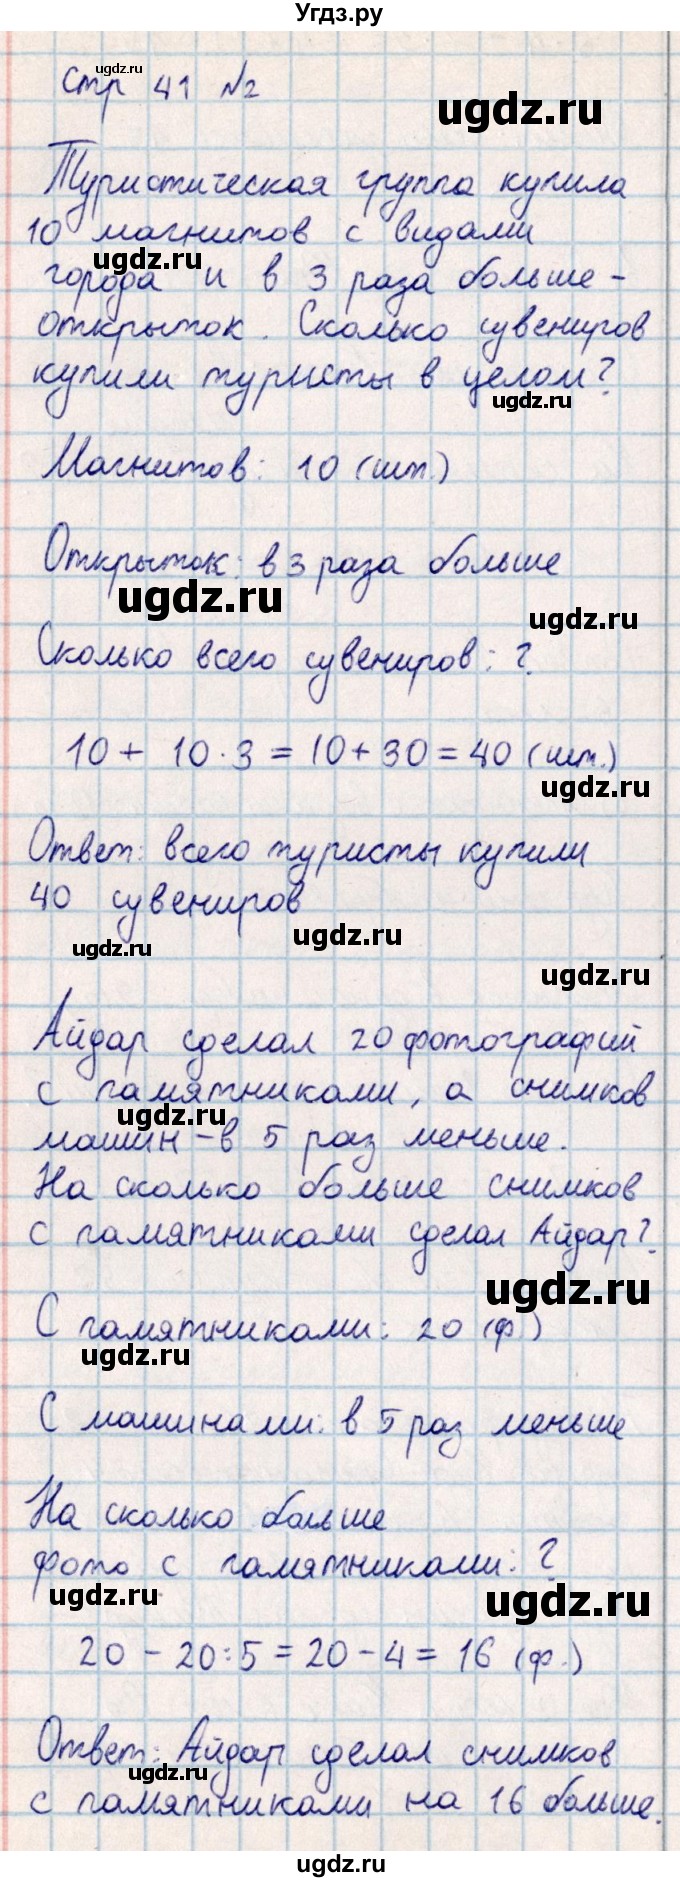 Угдз.ру
ugdz.ru
стр 41 №2
ugdz.ru
Туристическая группа купила
10 магнитов с видами
ugdz.ru
города и в 3 раза больше -
открыток. Сколько сувениров
купили туристы в целом?
ugdz.ru
Магнитов: 10 (шт.)
Открыток: в 3 раза больше
ugdz.ru
ugdz.ru
Сколько всего сувениров: ?
10 + 10 · 3 = 10 + 30 = 40 (шт.)
ugdz.ru
Ответ: всего туристы купили
40 сувениров
ugdz.ru
ugdz.ru
ugdz.ru
Айдар сделал 20 фотографий
с памятниками, а снимков
ugdz.ru
машин - в 5 раз меньше.
На сколько больше снимков
с памятниками сделал Айдар?
ugdz.ru
С памятниками: 20 (ф.)
ugdz.ru
С машинами: в 5 раз меньше
На сколько больше
фото с памятниками: ?
ugdz.ru
ugdz.ru
20 - 20 : 5 = 20 - 4 = 16 (ф.)
Ответ: Айдар сделал снимков
ugdz.ru
с памятниками на 16 больше.
ugdz.ru